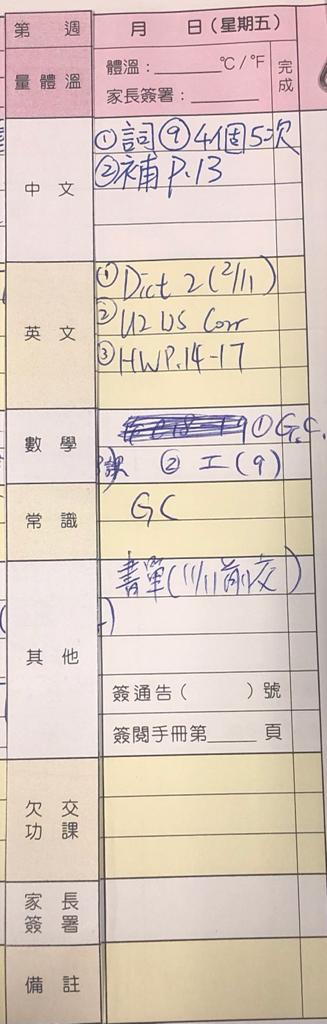 第 週 月 日(星期五)
量體溫 體溫:______℃/℉ 完成
家長簽署:______
中文 ①詞⑨4個5次
②補P.13
英文 ①Dict 2(2/11)
②U2 WS Corr
③HWP.14-17
數學 ①G.C.
②工(9)
常識 GC
其他 書單(11/11前交)
簽通告( )號
簽閱手冊第____頁
欠交功課
家長簽署
備註